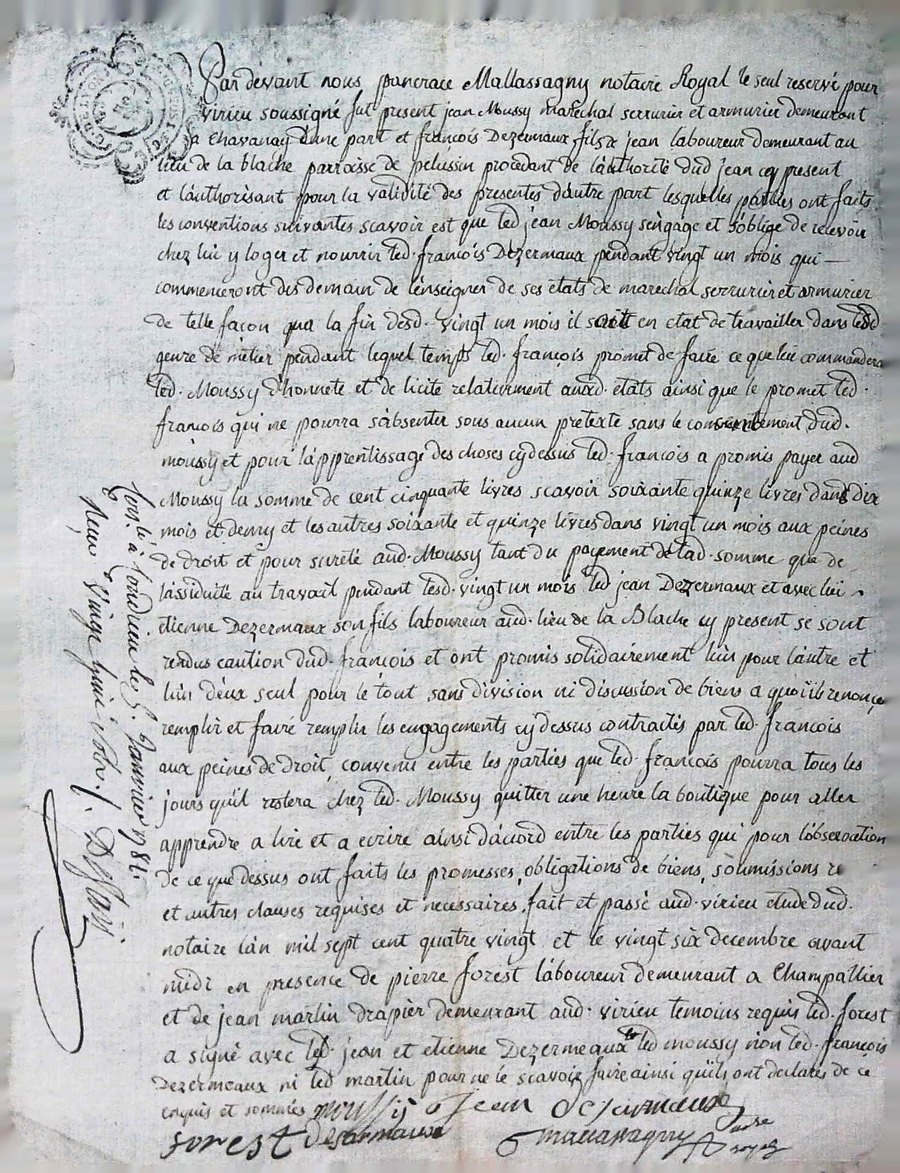 Par devant nous pancrace Mallassagny notaire Royal le seul reservé pour
virieu soussigné fut present jean Moussy marechal serrurier et armurier demeurant
a Chavanay dune part et francois Dezermaux fils de jean laboureur demeurant au
lieu de la blache parroisse de pelussin procedant de l'authorité dud jean cy present
et l'authorisant pour la validité des presentes dautre part lesquelles parties ont faits
les conventions suivantes scavoir est que led jean Moussy s'engage et s'oblige de recevoir
chez lui y loger et nourrir led. francois Dezermaux pendant vingt un mois qui —
commenceront dès demain de l'enseigner de ses etats de marechal serrurier et armurier
de telle façon qua la fin desd. vingt un mois il soit en etat de travailler dans led
genre de métier pendant lequel temps led. françois promet de faire ce que lui commandera
led. Moussy d'honnete et de licite relativement auxd. états ainsi que le promet led.
françois qui ne pourra s'absenter sous aucun pretexte sans le consentement dud.
moussy et pour l'apprentissage des choses cydessus led. francois a promis payer aud
Moussy la somme de cent cinquante livres scavoir soixante quinze livres dans dix
mois et demy et les autres soixante et quinze livres dans vingt un mois aux peines
de droit et pour sureté aud. Moussy tant du payement de lad. somme que de
l'assiduité au travail pendant lesd. vingt un mois led jean Dezermaux et avec lui
etienne Dezermaux son fils laboureur aud. lieu de la Blache cy present se sont
rendus caution dud. françois et ont promis solidairement lun pour lautre et
lun deux seul pour le tout sans division ni discussion de biens a quoi ils renonce
remplir et faire remplir les engagements cydessus contractés par led. françois
aux peines de droit, convenu entre les parties que led. françois pourra tous les
jours qu'il restera chez led. Moussy quitter une heure la boutique pour aller
apprendre a lire et a ecrire ainsi dacord entre les parties qui pour l'observation
de ce que dessus ont faits les promesses, obligations de biens, soumissions re
et autres clauses requises et necessaires, fait et passé aud. virieu etude dud.
notaire l'an mil sept cent quatre vingt et le vingt six decembre avant
midi en presence de pierre forest laboureur demeurant a Champallier
et de jean martin drapier demeurant aud. virieu temoins requis led. forest
a signé avec led. jean et etienne Dezermeaux led moussy non led. françois
Dezermeaux ni led martin pour ne le scavoir faire ainsi qu'ils ont declarés de ce
enquis et sommés moussy Jean dezermaux
forest desarmaux mallassagny nore
royal
à Condrieu le 5. Janvier 1781.
Reçu vingt huit sols